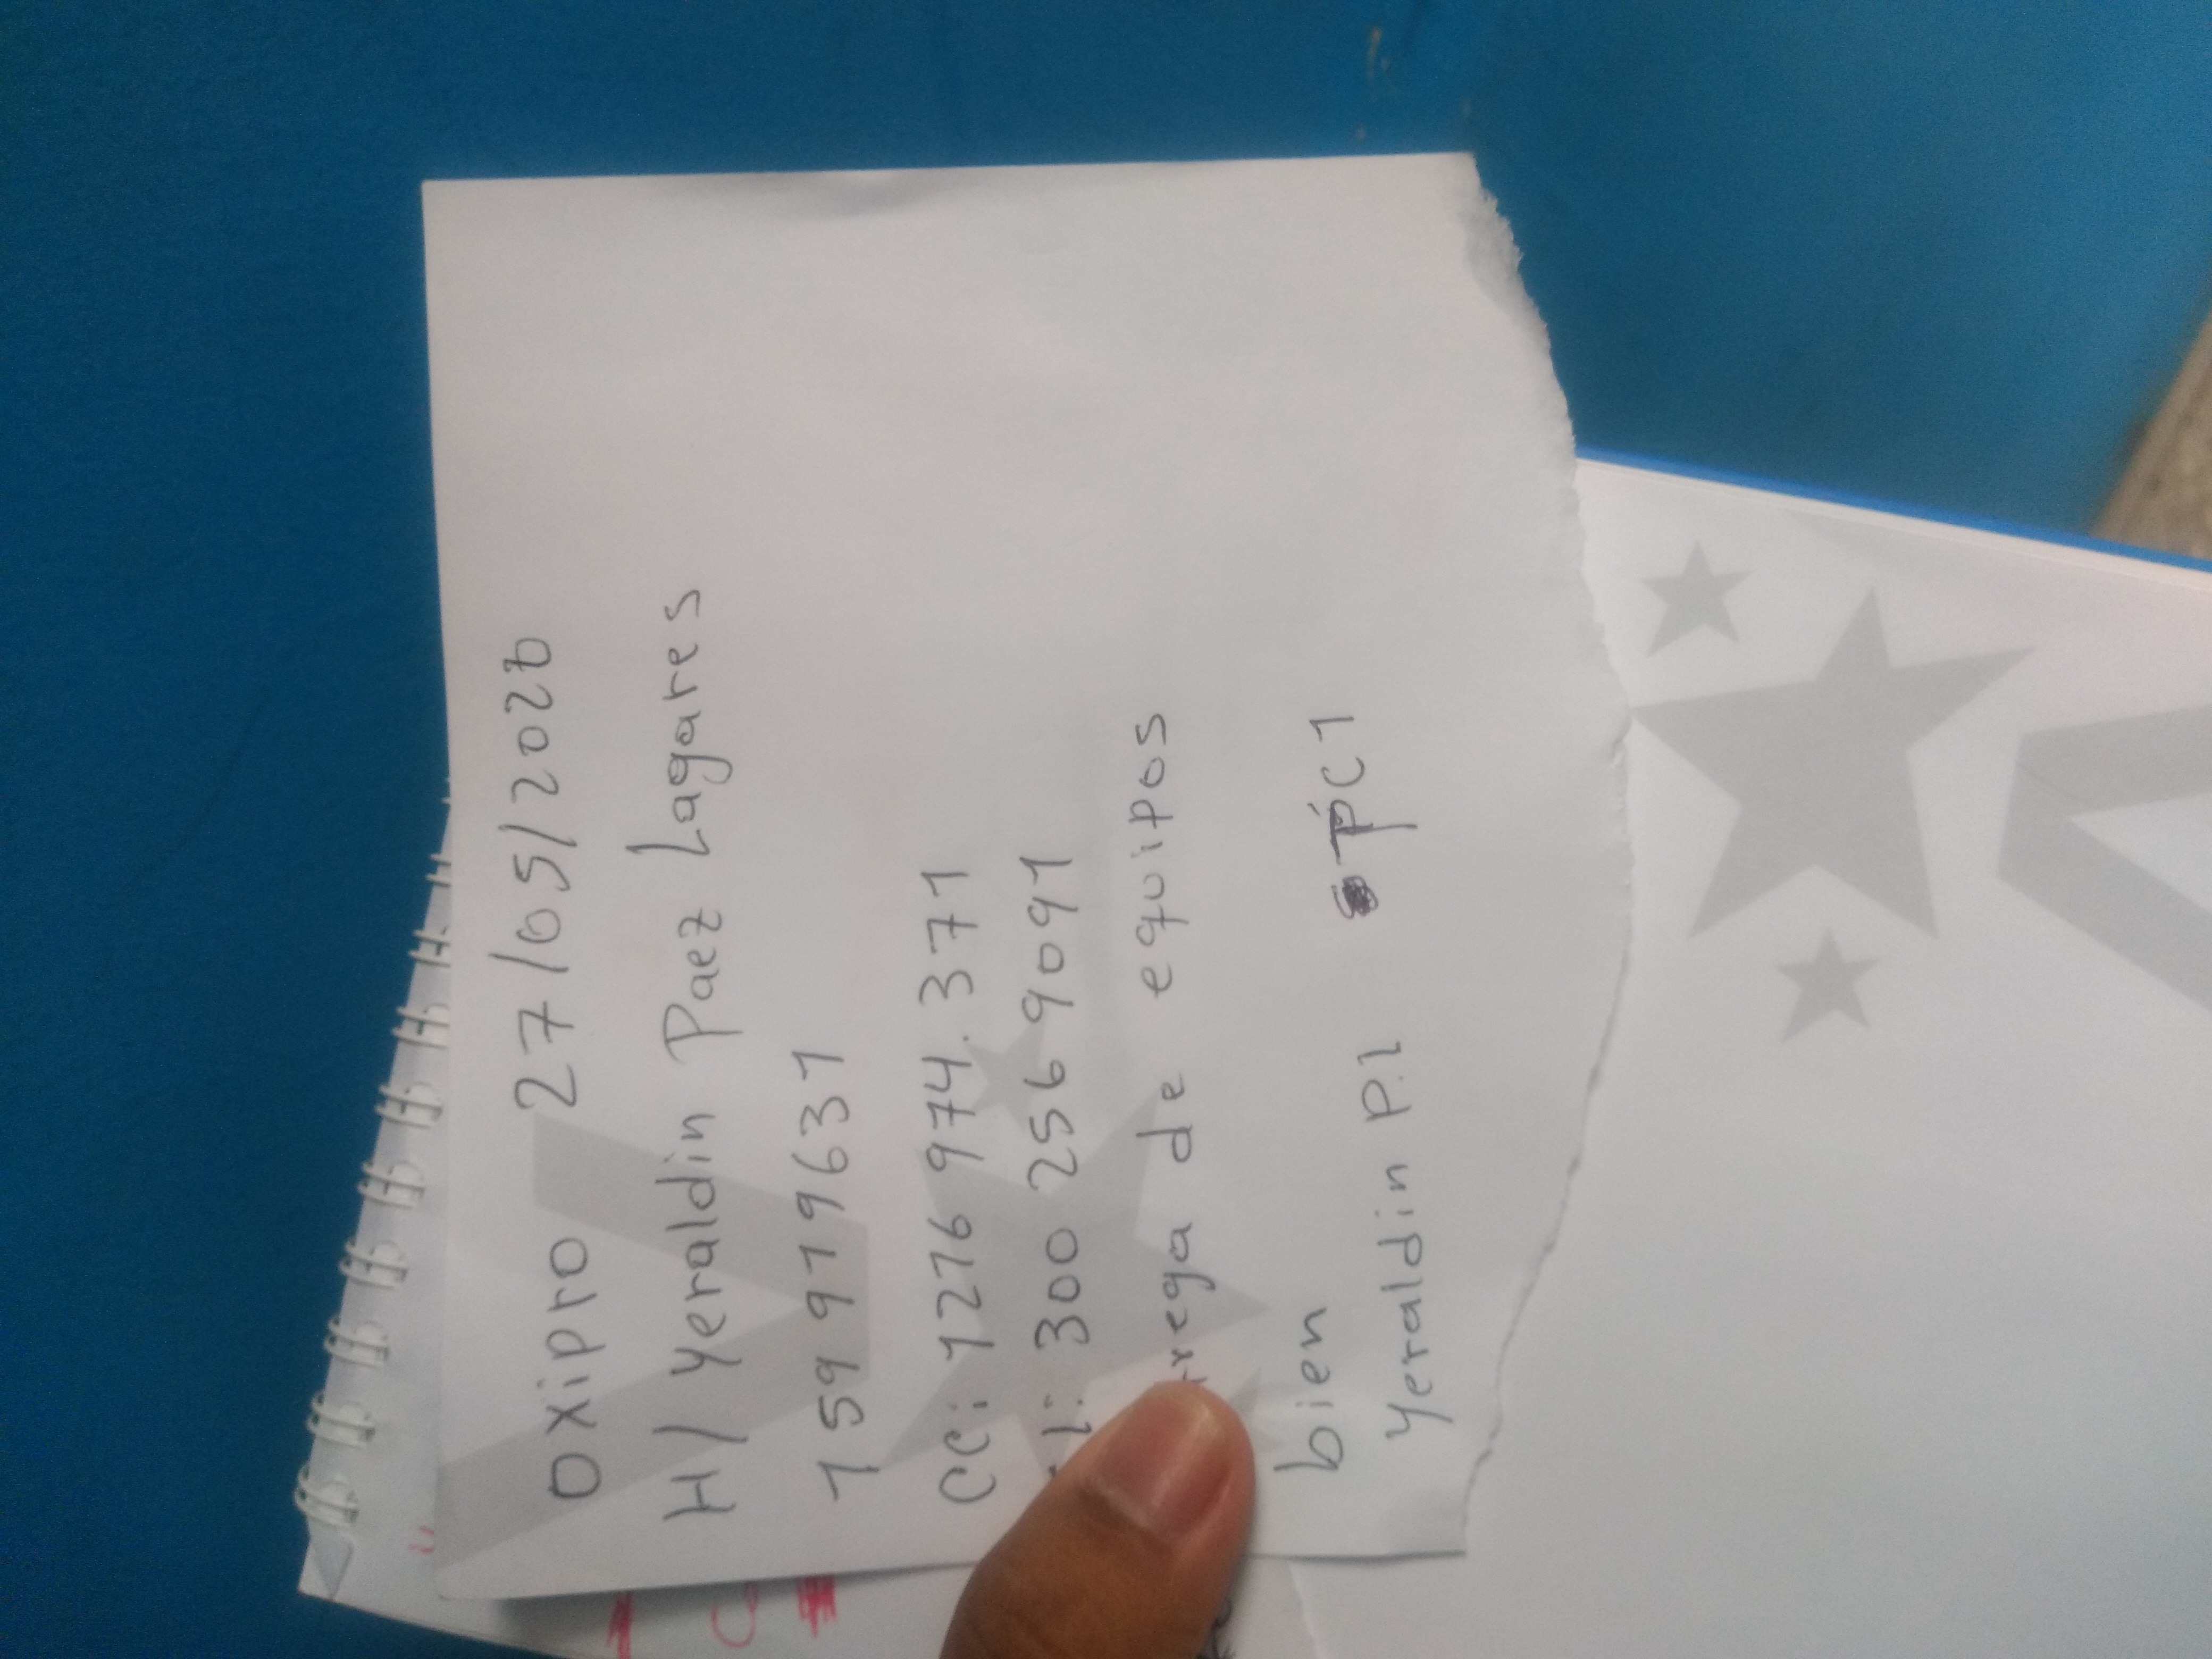 oxipro 27/05/2026
H/ Yeraldin Paez Lagares
159 979631
CC: 1276 974.371
l: 300 256 9091
rega de equipos
bien PC1
Yeraldin P.l